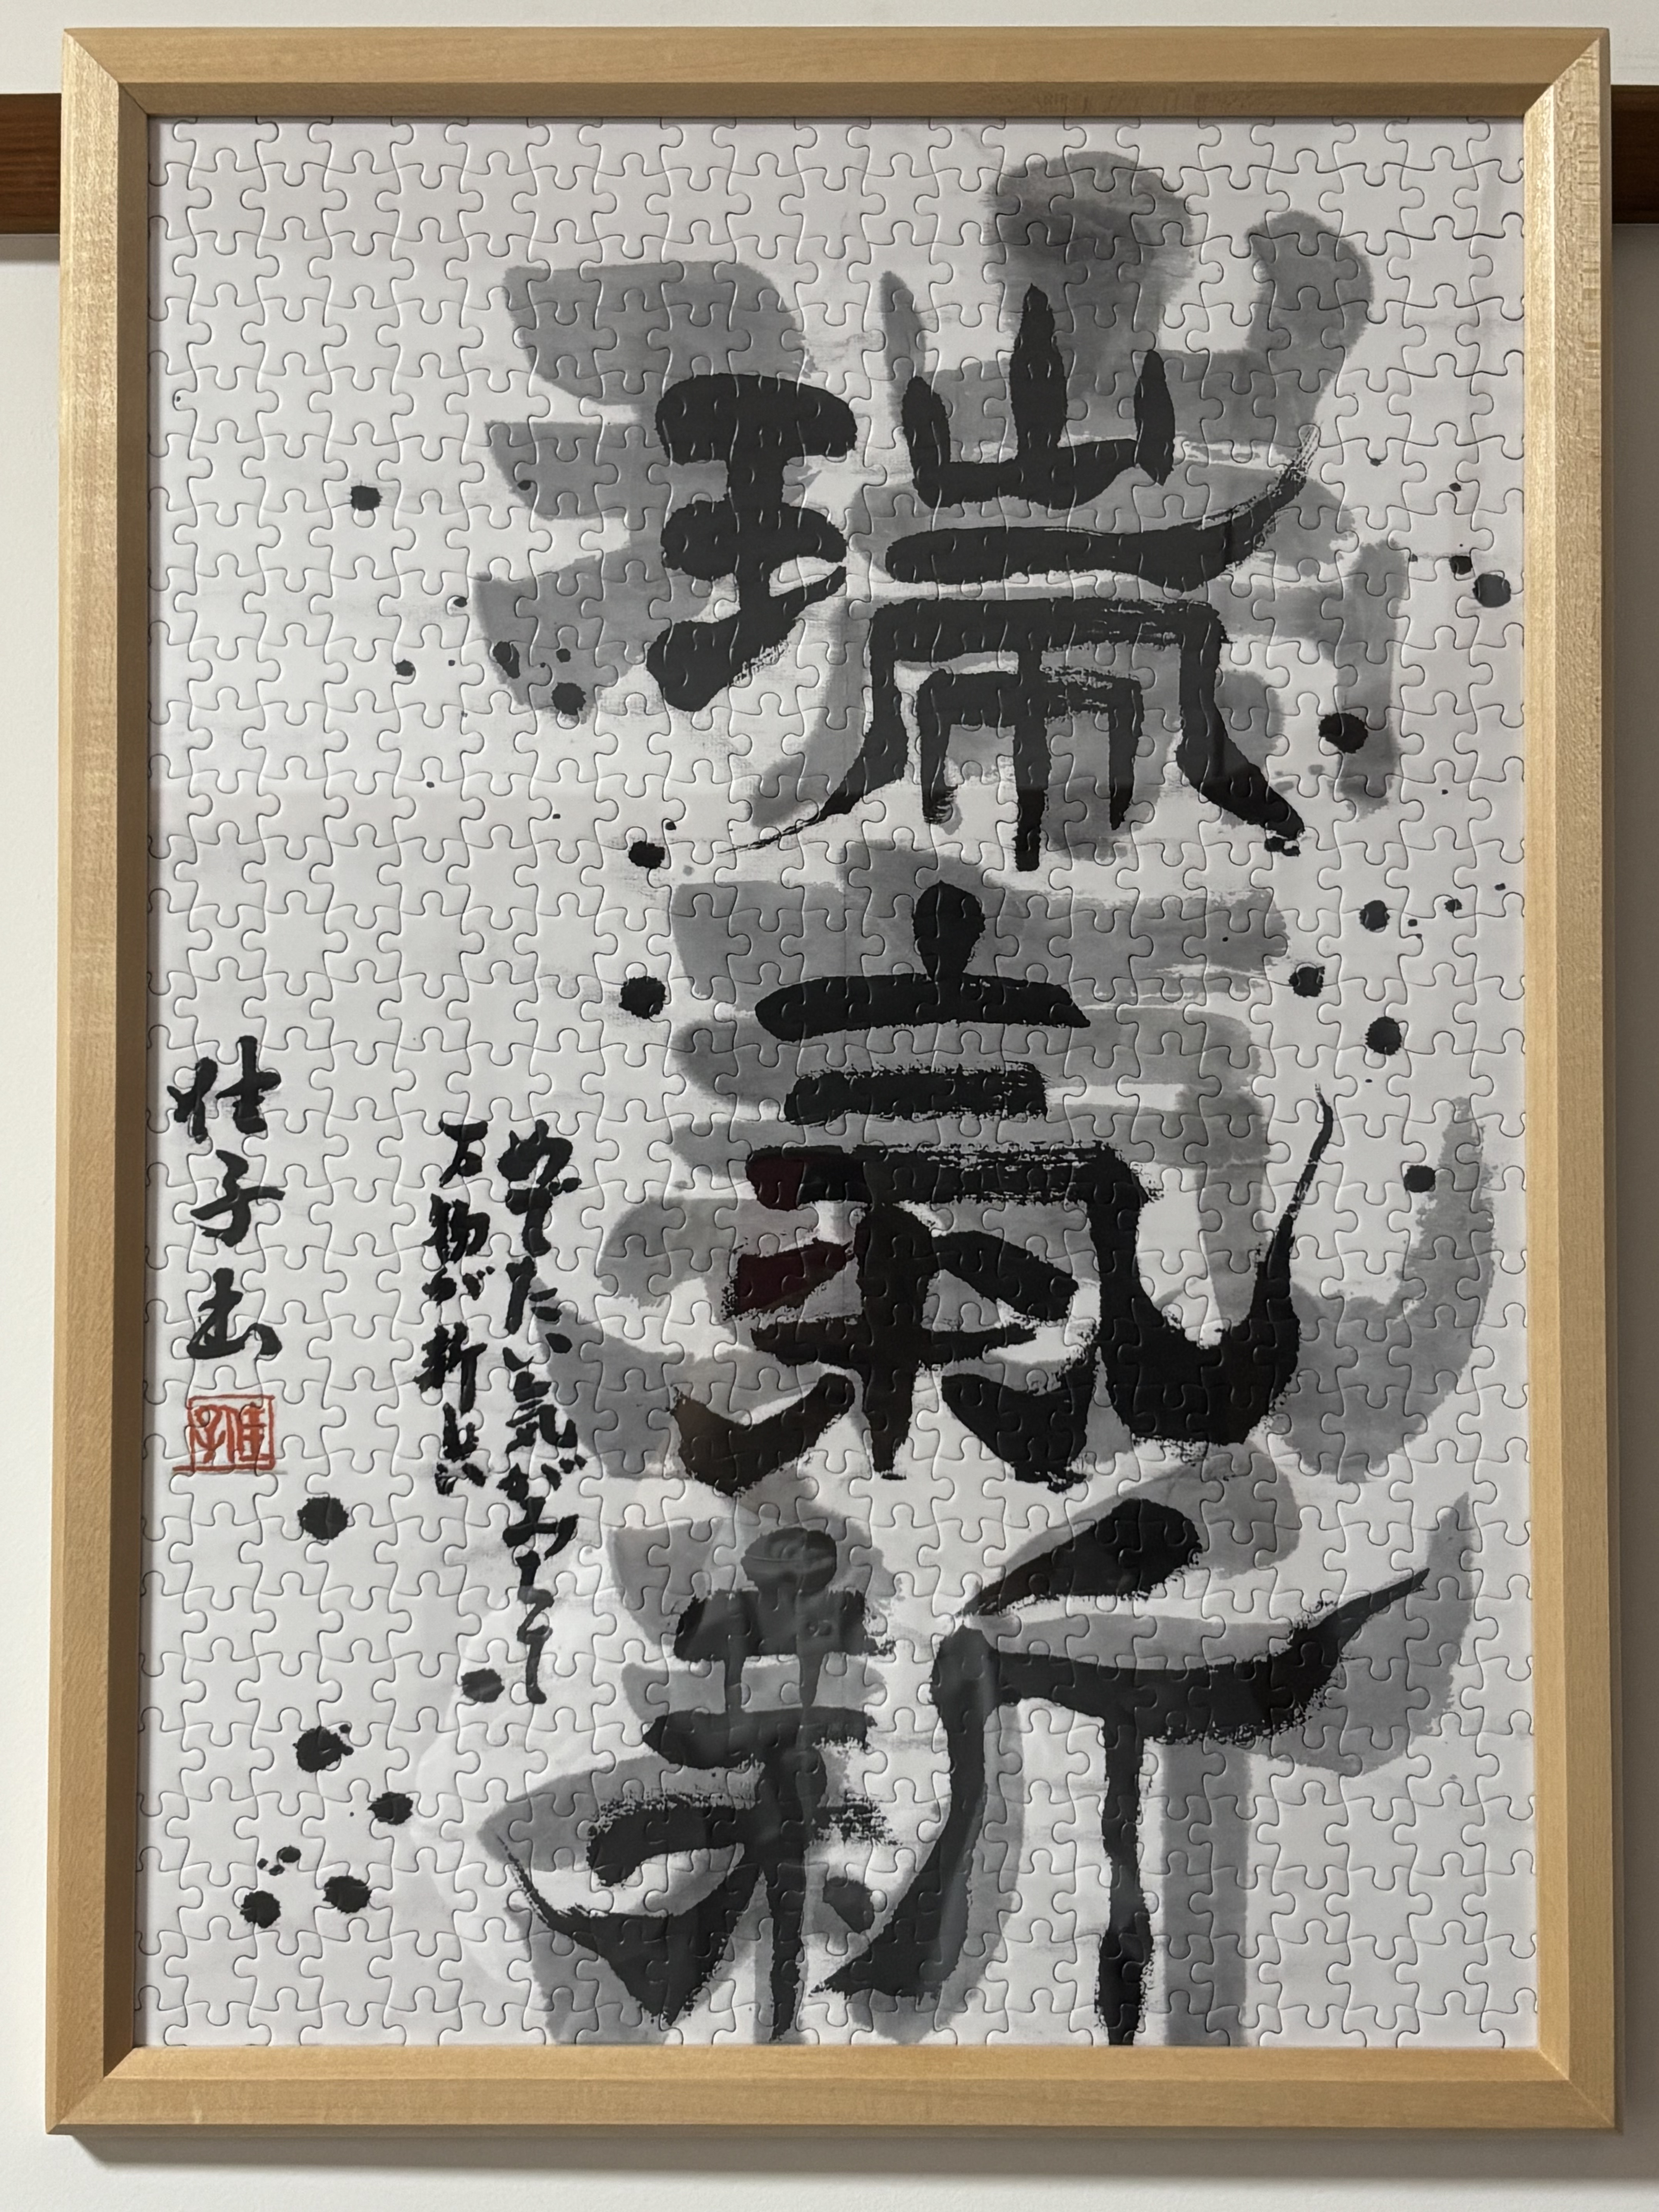 瑞氣新
めでたい気がみちて
万物が新しい
佳子書